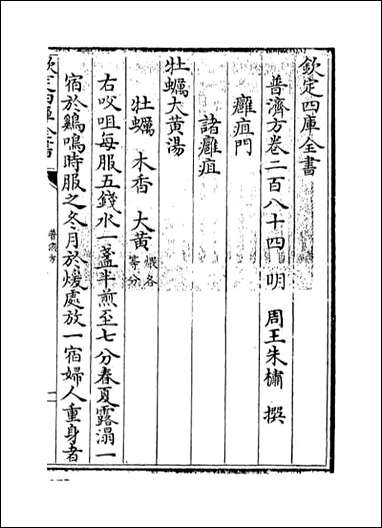 欽定四庫全書
普濟方卷二百八十四 明 周王朱橚 撰
癰疽門
諸癰疽
牡蠣大黃湯
牡蠣 木香 大黃 煨各等分
右㕮咀每服五錢水一盞半煎至七分春夏露溻一
宿於鷄鳴時服之冬月於煖處放一宿婦人重身者
欽定四庫全書
普濟方